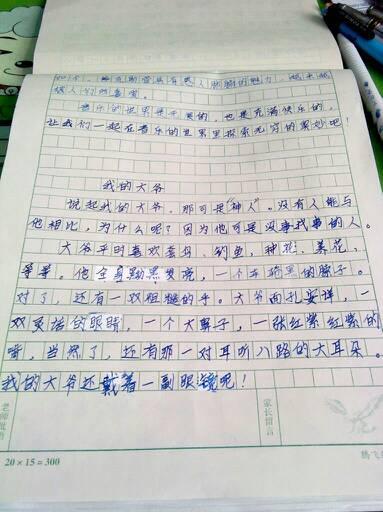 人们的喜爱。
音乐的世界是丰富的，也是充满快乐的，
让我们一起在音乐的世界里探索无穷的奥妙吧！
我的大爷
说起我的大爷，那可是“神人”。没有人能与
他相比，为什么呢？因为他可是没事找事的人。
大爷平时喜欢养鸟、钓鱼，种花、养花，
等等。他全身黝黑发亮，一个车轱里的脖子。
对了，还有一双粗糙的手。大爷面孔安详，一
双灵活的眼睛，一个大鼻子，一张红紫红紫的
嘴，当然了，还有那一对耳听八路的大耳朵。
我的大爷还戴着一副眼镜呢！
老师批语
家长留言
20×15=300
腾飞